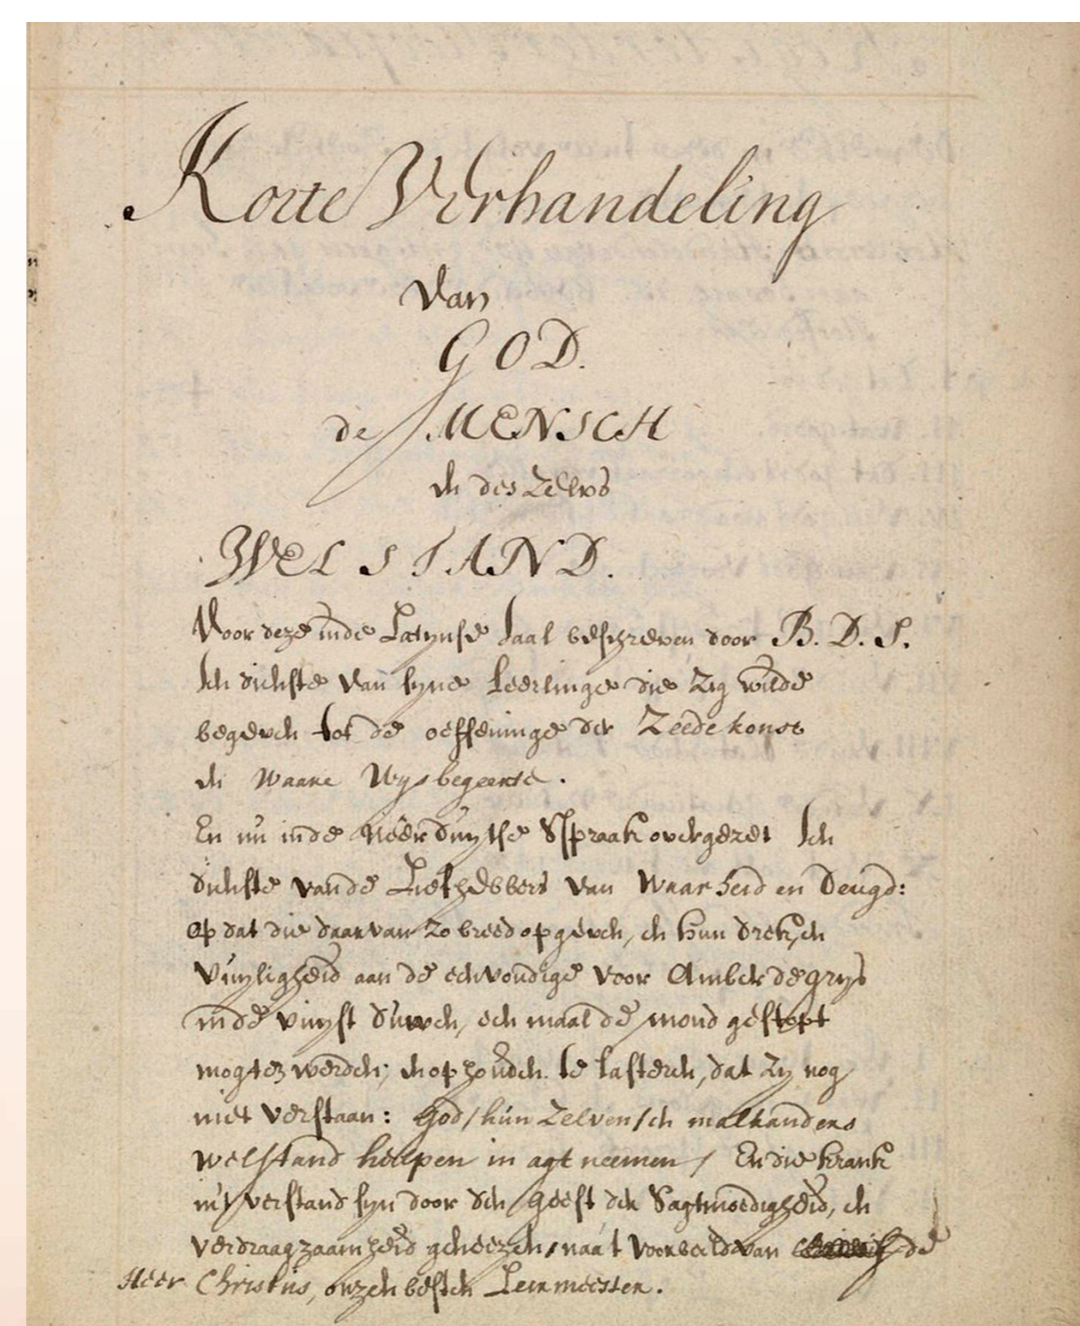 Korte Verhandeling
van
GOD.
de MENSCH
en deszelvs
WELSTAND.
Voor deze inde Latynse taal beschreven door B. D. S.
ten dienste van syne Leerlinge die zig wilde
begeven tot de oeffeninge der Zeedekonst
en Waare Wysbegeerte.
En nu inde Neerduytse Spraak overgezet ten
dienste vande Liefhebbers van Waarheid en Deugd:
Op dat die daar van zo breed opgeven, en hun drek, en
vuyligheid aan de eenvoudige voor Amberdegrys
inde vuyst duwen, een maal de mond gestopt
mogten werden; en ophouden te lasteren, dat zy nog
niet verstaan: God, hun zelven, en malkanders
welstand helpen in agt neemen, En die krank
in 't verstand syn door den geest der Sagtmoedigheid, en
verdraagzaamheid geneezen, naa 't voorbeeld van de
Heer Christus, onzen besten Leermeester.